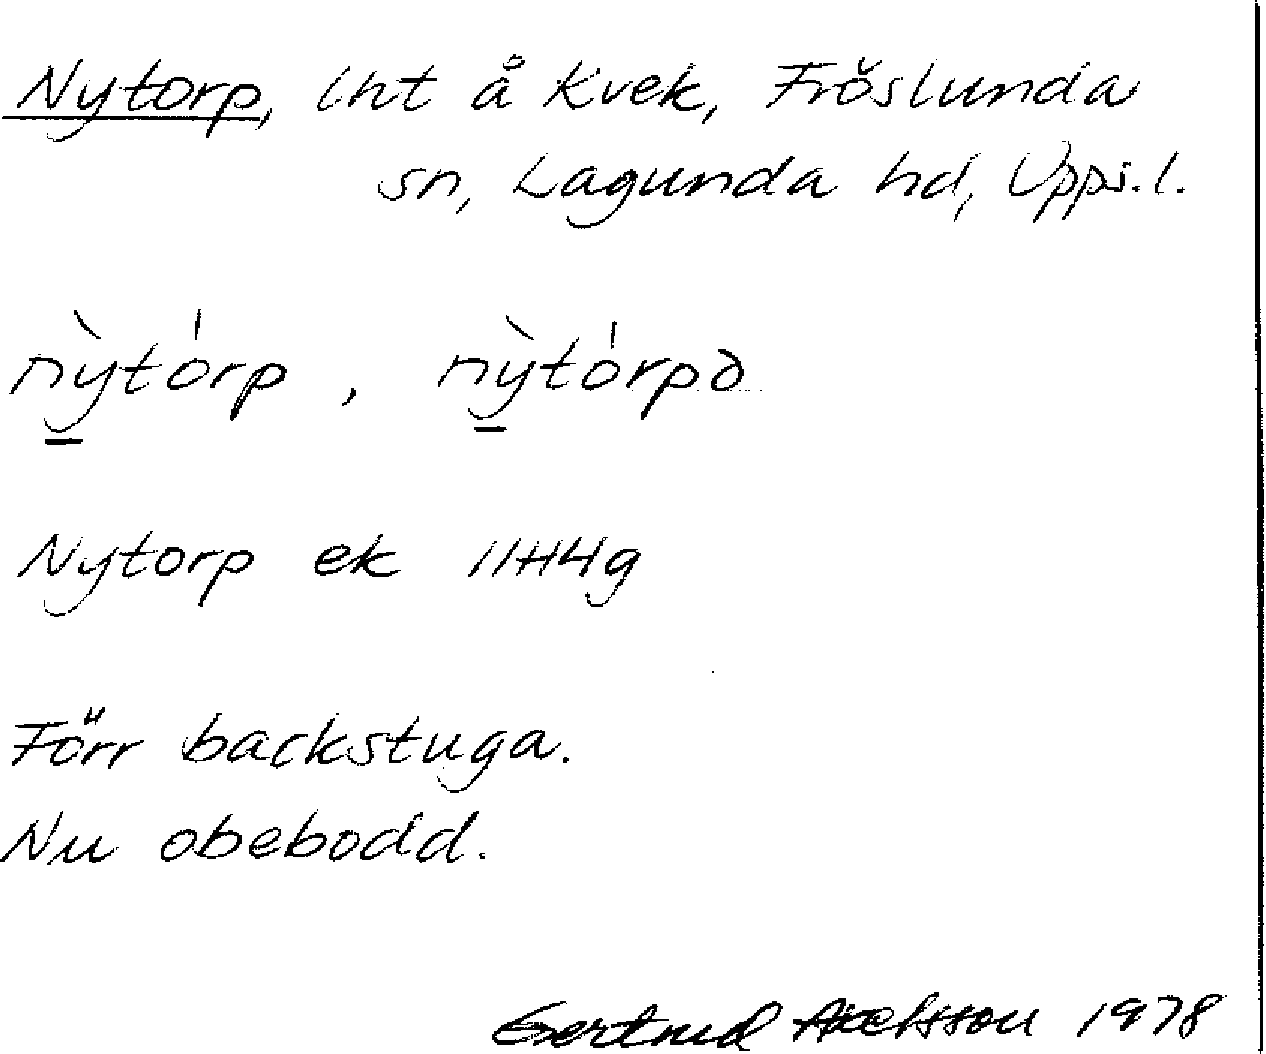 Nytorp, lht å Kvek, Fröslunda
sn, Lagunda hd, Upps.l.
nỳtórp, nỳtórpə
Nytorp ek 11H4g
Förr backstuga.
Nu obebodd.
Gertrud Axelsson 1978